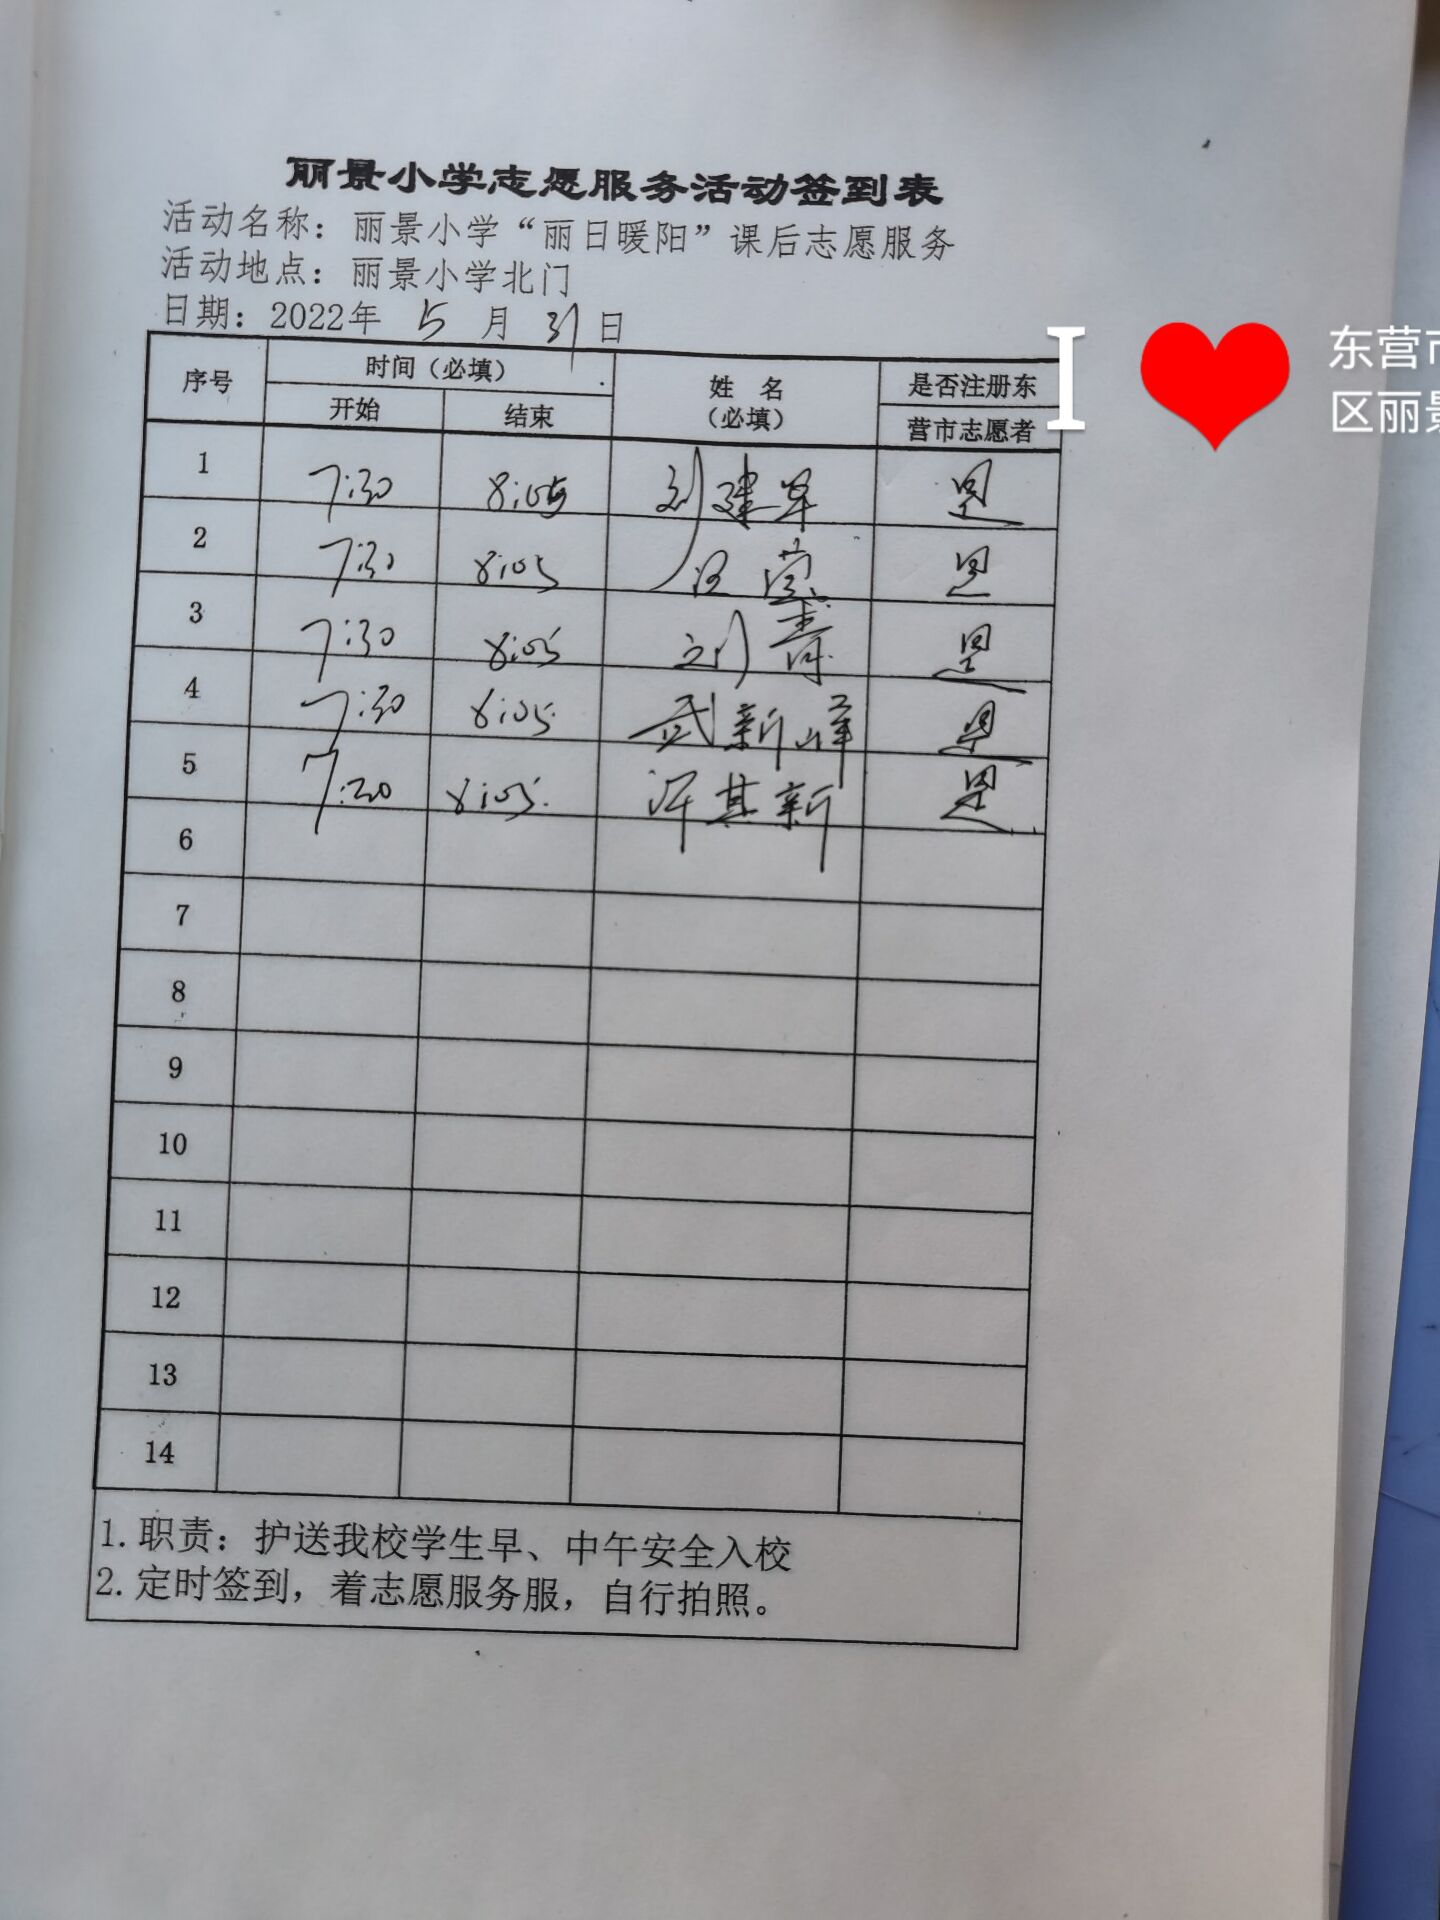 丽景小学志愿服务活动签到表
活动名称：丽景小学“丽日暖阳”课后志愿服务
活动地点：丽景小学北门
日期：2022年 5 月 31 日
序号 时间（必填） 姓 名 是否注册东
开始 结束 （必填） 营市志愿者
1 7:30 8:05 刘建军 是
2 7:30 8:05 汪莹 是
3 7:30 8:05 刘涛 是
4 7:30 8:05 武新峰 是
5 7:30 8:05 许其新 是
6
7
8
9
10
11
12
13
14
1. 职责：护送我校学生早、中午安全入校
2. 定时签到，着志愿服务服，自行拍照。
I
东营市
区丽景